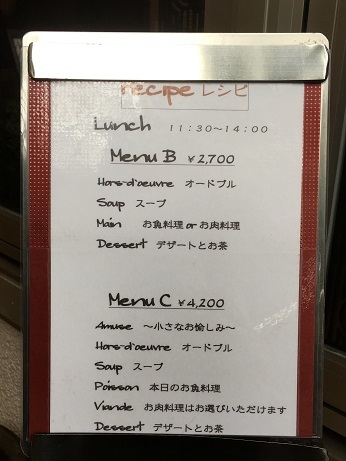 recipe レシピ
Lunch 11:30～14:00
Menu B ¥2,700
Hors-d'oeuvre オードブル
Soup スープ
Main お魚料理 or お肉料理
Dessert デザートとお茶
Menu C ¥4,200
Amuse ～小さなお愉しみ～
Hors-d'oeuvre オードブル
Soup スープ
Poisson 本日のお魚料理
Viande お肉料理はお選びいただけます
Dessert デザートとお茶